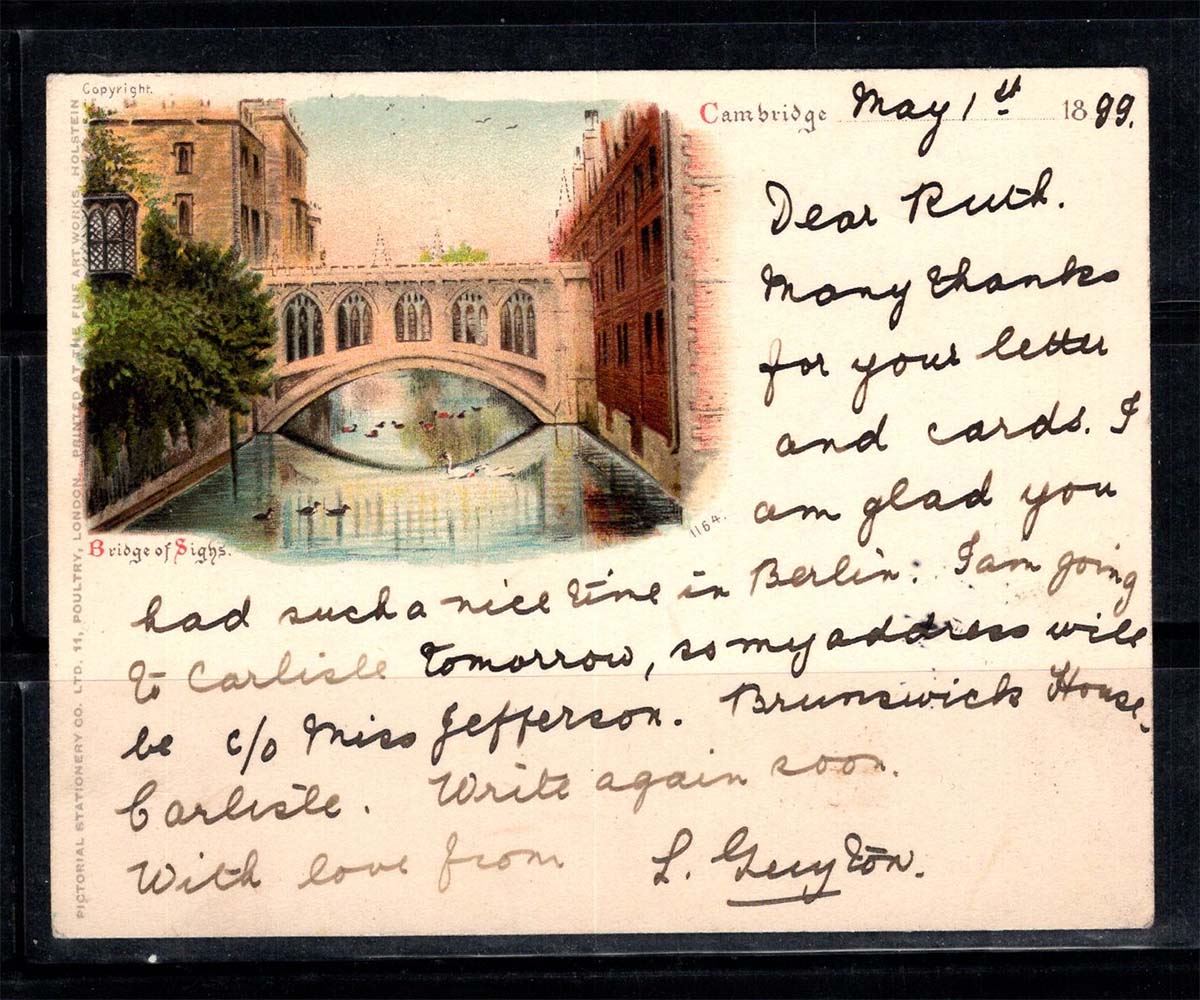 Copyright.
Cambridge May 1st 1899.
Dear Ruth.
Many thanks
for your letter
and cards. I
am glad you
1164.
Bridge of Sighs.
had such a nice time in Berlin. I am going
to Carlisle tomorrow, so my address will
be c/o Miss Jefferson. Brunswick House.
Carlisle. Write again soon.
With love from L. Guyton.
PICTORIAL STATIONERY CO. LTD. 11, POULTRY, LONDON. PRINTED AT THE FINE ART WORKS, HOLSTEIN